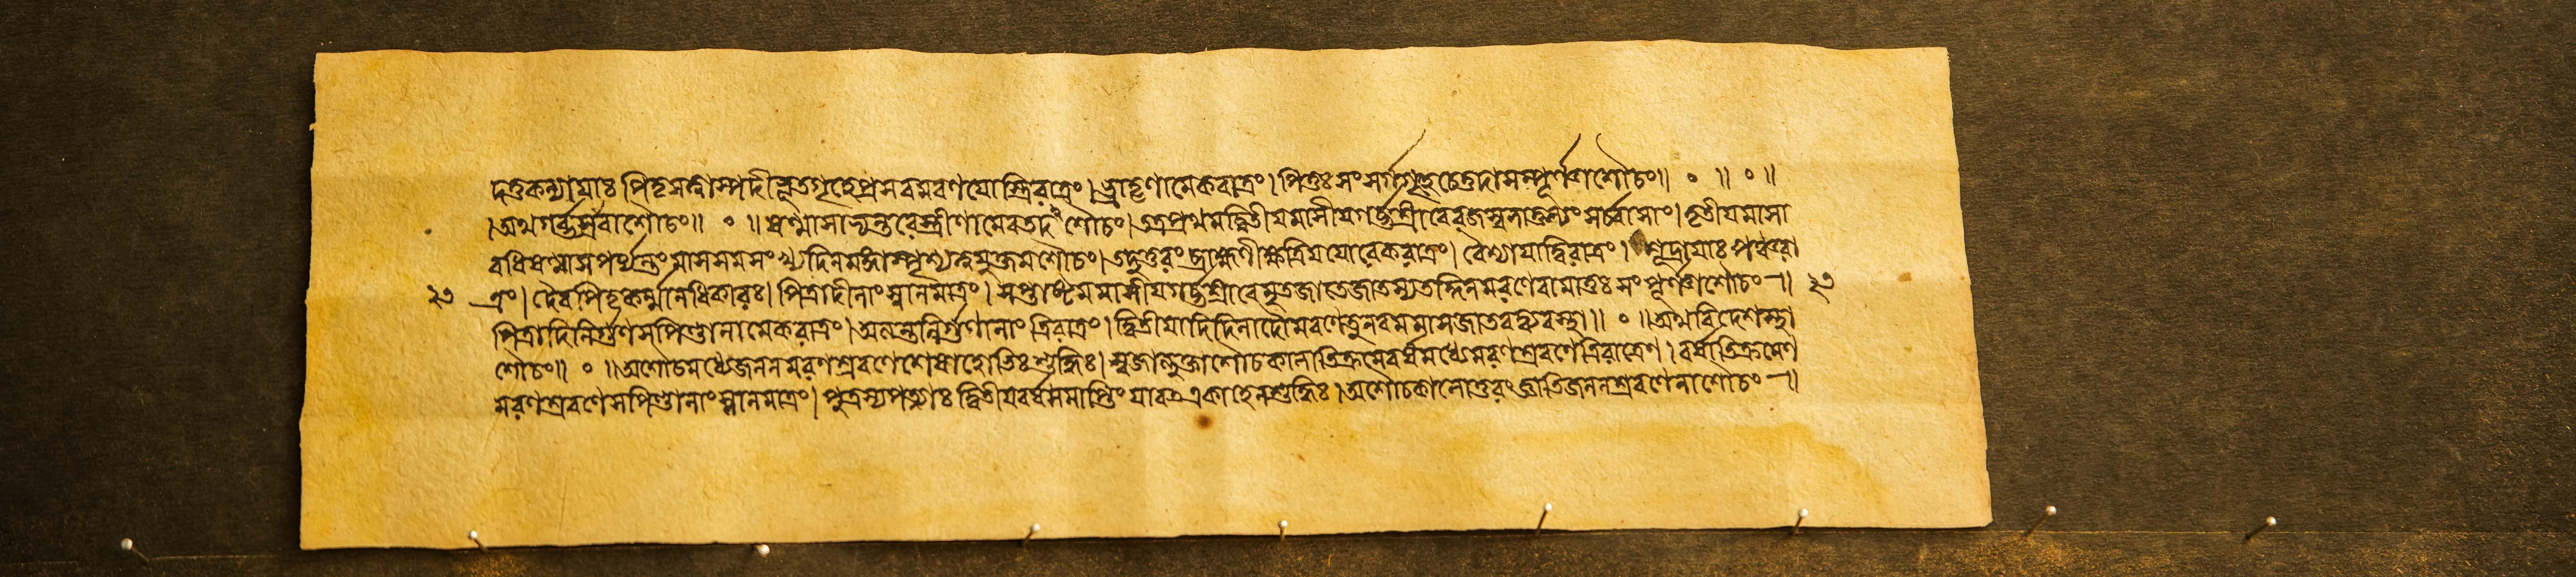 দত্তকন্যাযাঃ পিতৃসম্বাম্পদীভূতগৃহেপ্রসবমবণযোস্ত্রিরাত্রং। ভ্রাতৄণামেকবাত্রং। পিতুঃ সংসর্গশ্চেত্তদাসম্পূর্ণাশৌচং॥ ॰ ॥ ॰ ॥
।অথগর্ব্ভস্রবাশৌচং॥ ॰ ॥ ষণ্মাসাভ্যন্তরেস্ত্রীণামেবতদশৌচং। অত্রপ্রথমদ্বিতীযমাসীযগর্ব্ভশ্রাবেরজস্বলাতুল্যং সর্ব্বাসাং। তৃতীযমাসা
বধিষণ্মাসপর্য্যন্তং মাসসমসংখ্যদিনমঙ্গাস্পৃশ্যত্বযুক্তমশৌচং। তদুত্তরং ব্রাহ্মণীক্ষত্রিযযোরেকরাত্রং। বৈশ্যাযাদ্বিরাত্রং। শূদ্রাযাঃ পঞ্চরা
২৩ ত্রং। দৈবপিতৃকর্ম্মানধিকারঃ। পিত্রাদীনাং স্নানমাত্রং। সপ্তাষ্টমমাসীযগর্ব্ভশ্রাবেমৃতজাতেজাতস্যতদ্দিনমরণেবামাতুঃ সংপূর্ণাশৌচং ॥ ২৩
পিত্রাদিনির্গুণসপিণ্ডানামেকরাত্রং। অত্যন্তনির্গুণানাং ত্রিরাত্রং। দ্বিতীযাদিদিনাদৌমরণেতুনবমমাসজাতবদ্ব্যবস্থা॥ ॰ ॥অথবিদেশস্থা
শৌচং॥ ॰ ॥অশৌচমধ্যেজননমরণশ্রবণেশেষাহোভিঃ শুদ্ধিঃ। স্বজাত্যুক্তাশৌচকালাতিক্রমেবর্ষমধ্যেমরণশ্রবণেত্রিরাত্রেণ। বর্ষাতিক্রমেণ
মরণশ্রবণেসপিণ্ডানাং স্নানমাত্রং। পুত্রস্যপত্ন্যাঃ দ্বিতীযবর্ষসমাপ্তিং যাবত্ একাহেনশুদ্ধিঃ। অশৌচকালোত্তরং জ্ঞাতিজননশ্রবণেনাশৌচং ॥